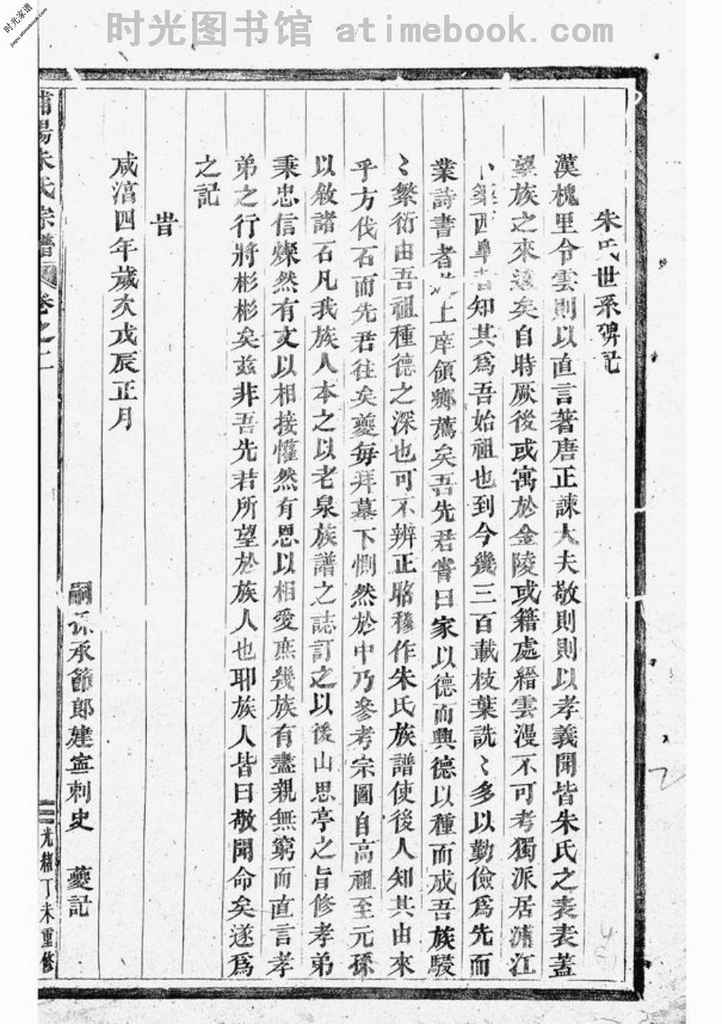 时光图书馆 atimebook.com
时光家谱
朱氏世系碑記
漢槐里令雲則以直言著唐正諫大夫敬則則以孝義聞皆朱氏之表表蓋
望族之來遠矣自時厥後或寓於金陵或籍處縉雲漫不可考獨派居浦江
西皐者知其爲吾始祖也到今幾三百載枝葉詵〻多以勤儉爲先而
業詩書者上庠領鄉薦矣吾先君嘗曰家以德而興德以種而成吾族駸
〻繁衍由吾祖種德之深也可不辨正昭穆作朱氏族譜使後人知其由來
乎方伐石而先君往矣夔每拜墓下惻然於中乃參考宗圖自高祖至元孫
以敘諸石凡我族人本之以老泉族譜之誌訂之以後山思亭之旨修孝弟
秉忠信燦然有文以相接懽然有恩以相愛庶幾族有盡親無窮而直言孝
弟之行將彬彬矣玆非吾先君所望於族人也耶族人皆曰敬聞命矣遂爲
之記
旹
咸淳四年歲次戊辰正月
嗣孫承節郎建寧刺史 夔記
浦陽朱氏宗譜 卷之二
光緒丁未重修